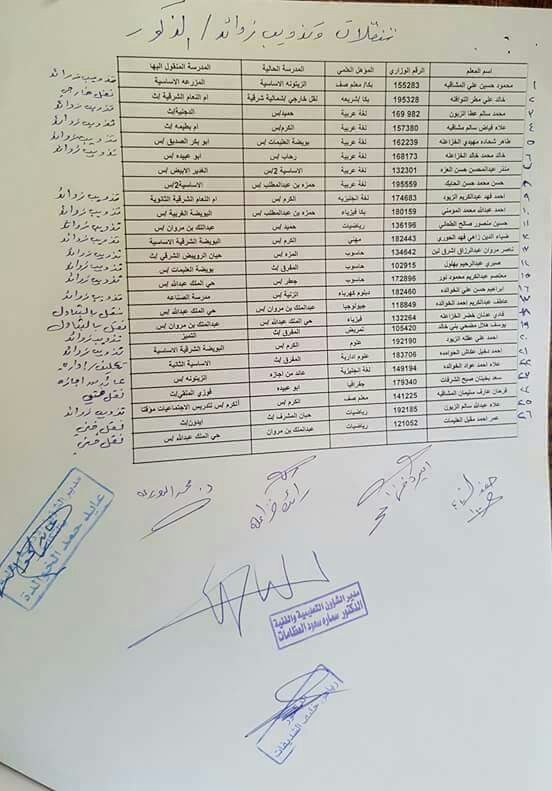 تنقلات وتذويب زوائد / الذكور
اسم المعلم الرقم الوزاري المؤهل العلمي المدرسة الحالية المدرسة المنقول اليها
١ محمود حسين علي المشاقبه 155283 بكا/ معلم صف الزيتونه الاساسية المزرعه الاساسية تذويب زوائد
٢ خالد علي مطر النوافله 195328 بكا/شريعه نقل خارجي/شمالية شرقية ام النعام الشرقية/ث نقل خارجي
٣ محمد سالم عطا الزيون 169 982 لغة عربية حميد/س الدجنية/ث تذويب زوائد
٤ علاء فياض سالم مشاقبه 157380 لغة عربية الكرم/س ام بطيمه/ث تذويب زوائد
طاهر شحاده مهيدي الخزاعله 162239 لغة عربية بويضة العليمات/س ابو بكر الصديق/س تذويب زوائد
خالد محمد خالد الخزاعله 168173 لغة عربية رحاب/س ابو عبيده/س تذويب زوائد
منذر عبدالمحسن حسن العزه 132301 لغة عربية الاساسية 2/س الغدير الابيض/س
حسن محمد حسن الحايك 195559 لغة عربية حمزه بن عبدالمطلب/س الاساسية2/س
٩ احمد فهد عبدالكريم الزيود 174683 لغة انجليزيه الكرم/س ام النعام الشرقية الثانوية تذويب زوائد
احمد عبدالله محمد المومني 180159 بكا فيزياء حمزه بن عبدالمطلب/س البويضة الغربية/س تذويب زوائد
١١ حسين منصور صالح الطحاني 136196 رياضيات حميد/س عبدالملك بن مروان/س تذويب زوائد
ضياء الدين زاهي فهد الحوري 182443 مهني الكرم/س البويضة الشرقية الاساسية تذويب زوائد
ناصر مروان عبدالرزاق اشرق لبن 132634 حاسوب المزه/س حيان الرويبض الشرقي/ث تذويب زوائد
صبري عبدالرحيم بهلول 102915 حاسوب المفرق/ث بويضة العليمات/س تذويب زوائد
معتصم عبدالكريم محمود نور 172896 حاسوب جعفر/س حي الملك عبدالله/س تذويب زوائد
ابراهيم حسن علي الخوالده 182460 دبلوم كهرباء الزنية/س مدرسة الصناعه تذويب زوائد
عاطف عبدالكريم احمد الخوالده 118849 جيولوجيا عبدالملك بن مروان/س حي الملك عبدالله/س نقل بالتبادل
فادي عدنان خضر الخزاعله 132264 فيزياء حي الملك عبدالله/س عبدالملك بن مروان/س نقل بالتبادل
١٩ يوسف هلال مضحي بني خالد 105420 تمريض المفرق/ث التميز تذويب زوائد
احمد علي عقله الزيود 192190 علوم الكرم/س البويضة الشرقية الاساسية تذويب زوائد
احمد دخيل عكاش الحوامده 183706 علوم ادارية المفرق/ث الاساسية الثانية
علاء احمد عواد الخوالدة 149194 لغة انجليزية عائد من اجازه الزيتونه/س
سعد بخيتان صبح الشرفات 179340 جغرافيا ابو عبيده فوزي الملقي/ث نقل فني
فرحان عارف سليمان المشاقبه 141225 معلم صف الكرم/س الكرم/س تدريس الاجتماعيات مؤقت تذويب زوائد
علاء عبدالله سالم الزيون 192185 رياضيات حيان المشرف/ث ايدون/ث نقل فني
٢٦ عمر احمد مقبل العليمات 121052 رياضيات عبدالملك بن مروان حي الملك عبدالله/س نقل فني
مدير الشؤون التعليمية والفنية
الدكتور سماره سعود العظامات